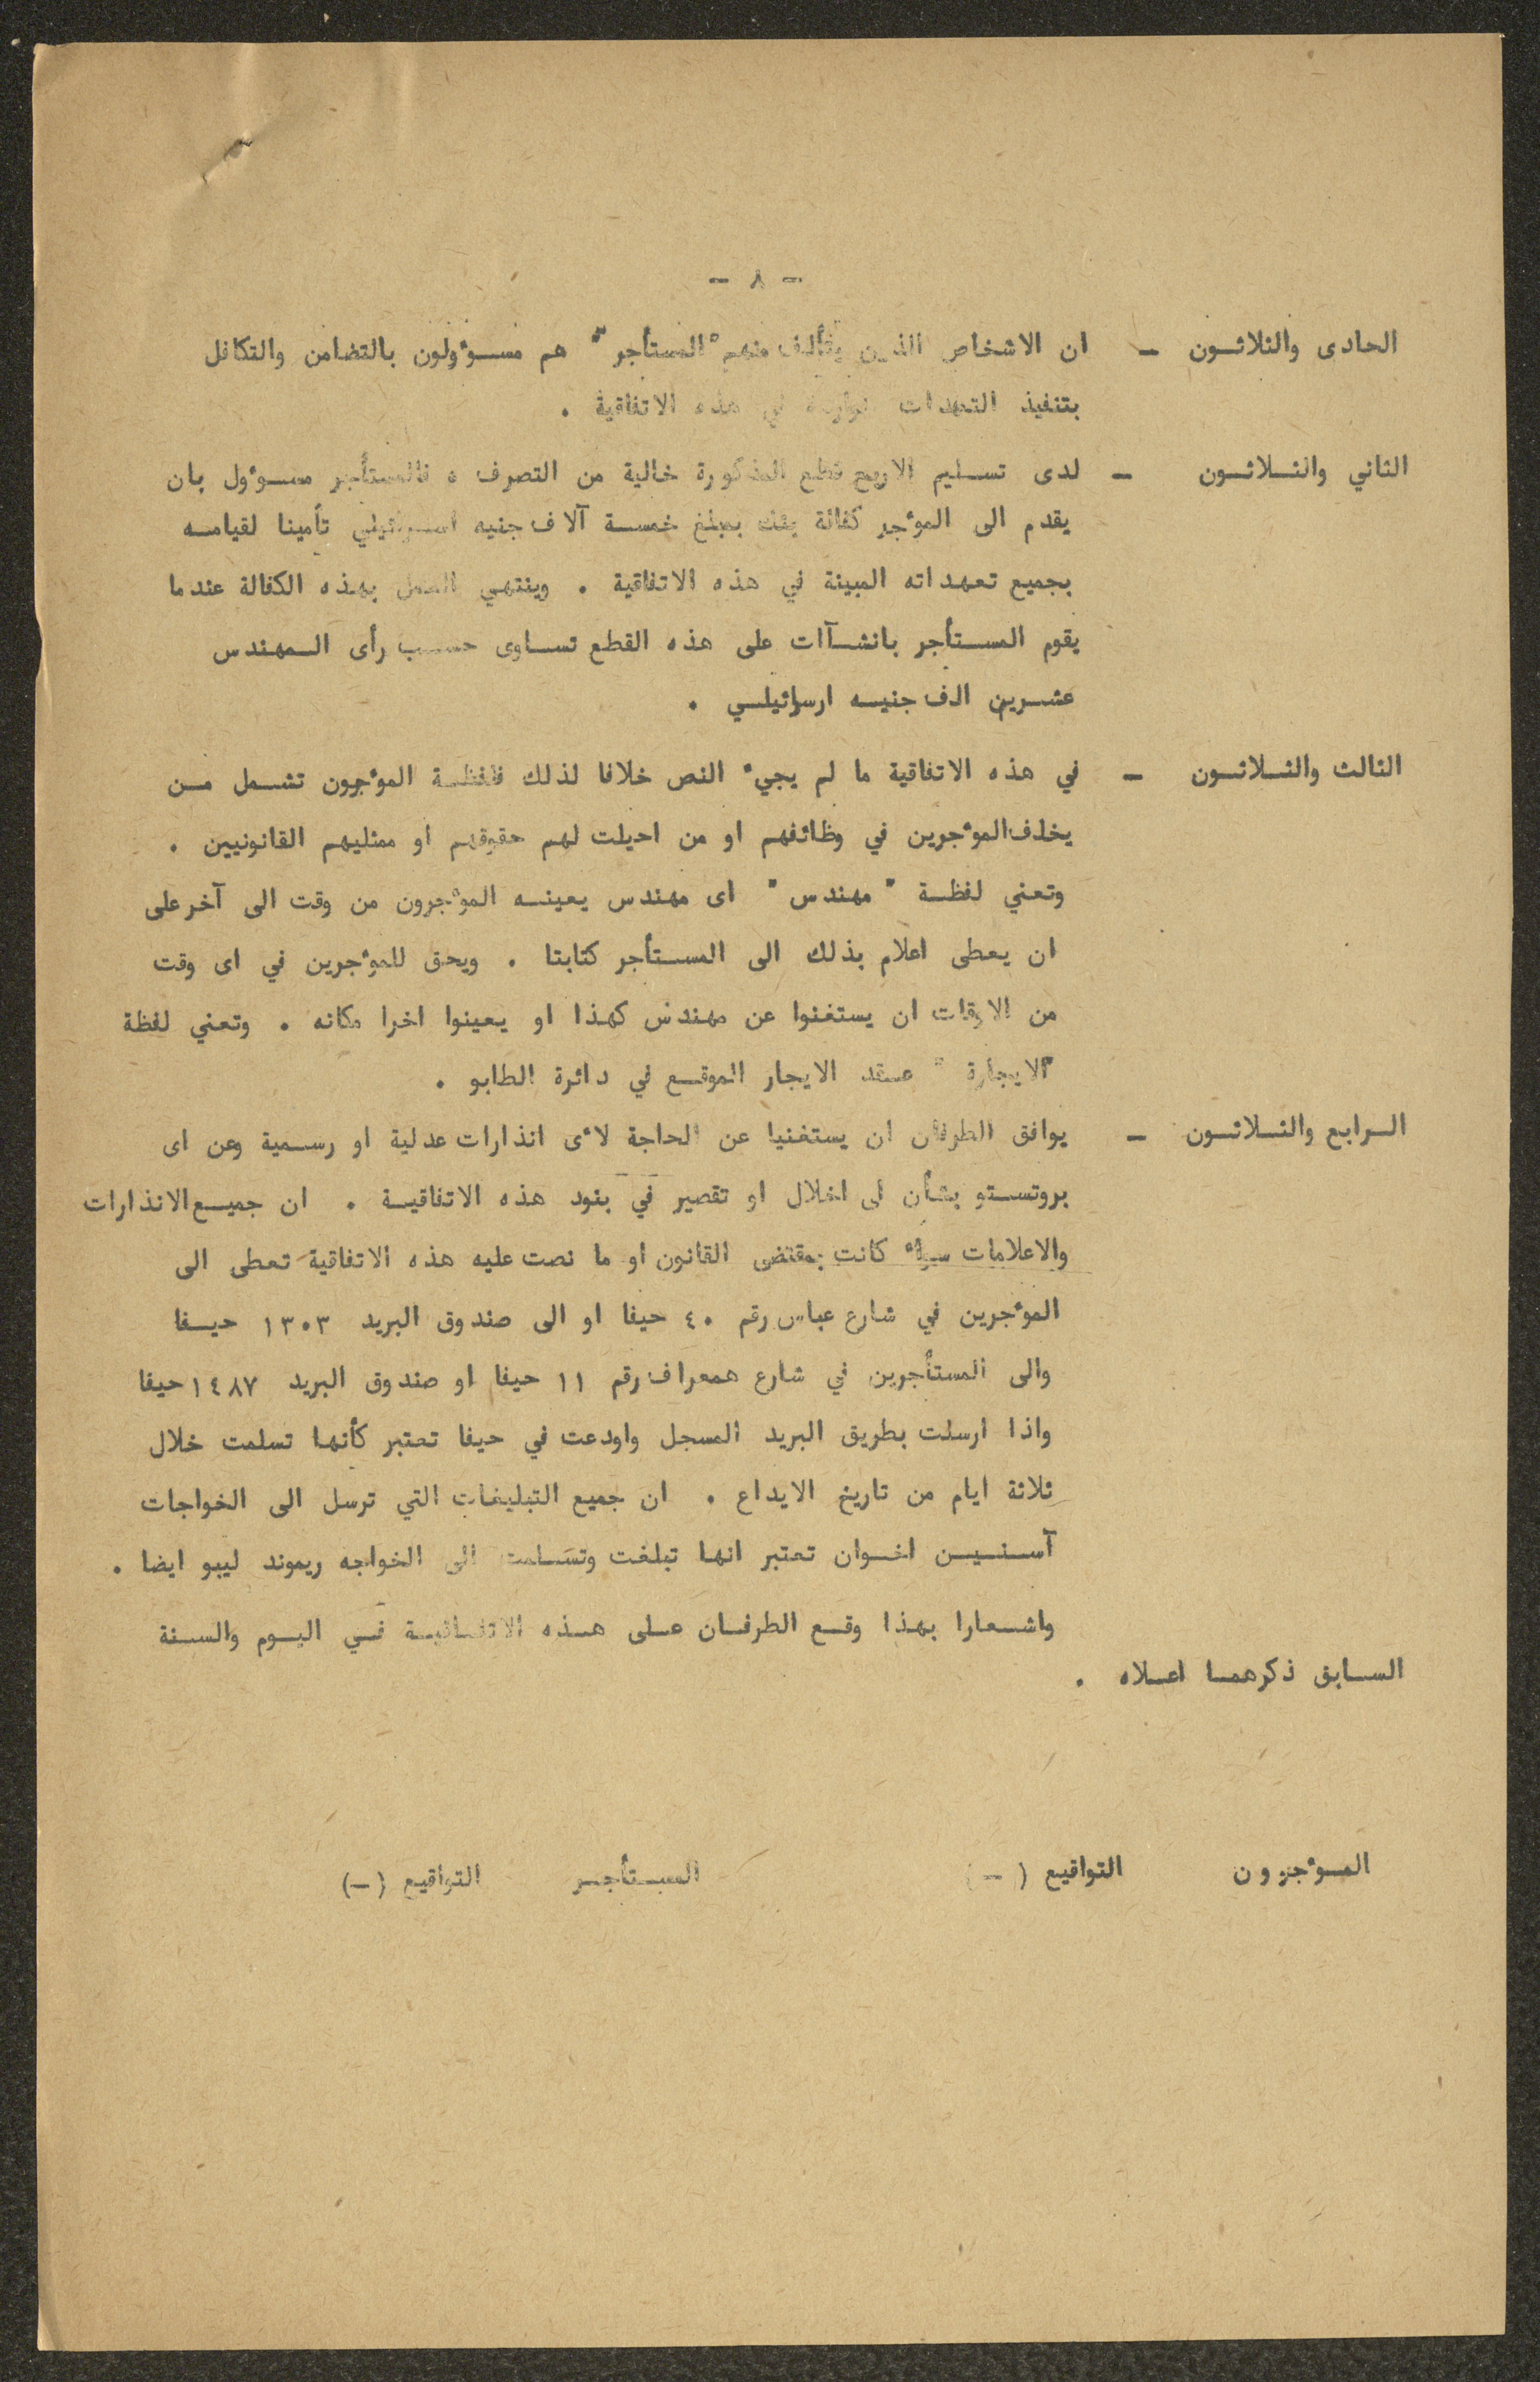 - ٨ -
الحادى والثلاثون - ان الاشخاص الذين يتألف منهم "المستأجر" هم مسوؤلون بالتضامن والتكافل
بتنفيذ التعهدات الواردة في هذه الاتفاقية .
الثاني والثلاثون - لدى تسليم الاربع قطع المذكورة خالية من التصرف ، فالمستأجر مسوؤل بان
يقدم الى الموؤجر كفالة بنك بمبلغ خمسة آلاف جنيه اسرائيلي تأمينا لقيامه
بجميع تعهداته المبينة في هذه الاتفاقية . وينتهي العمل بهذه الكفالة عندما
يقوم المستأجر بانشآات على هذه القطع تساوى حسب رأى المهندس
عشرين الف جنيه ارسائيلي .
الثالث والثلاثون - في هذه الاتفاقية ما لم يجيء النص خلافا لذلك فلفظة الموؤجرون تشمل من
يخلف الموؤجرين في وظائفهم او من احيلت لهم حقوقهم او ممثليهم القانونيين .
وتعني لفظة " مهندس " اى مهندس يعينه الموؤجرون من وقت الى آخر على
ان يعطى اعلام بذلك الى المستأجر كتابتا . ويحق للموؤجرين في اى وقت
من الاوقات ان يستغنوا عن مهندس كهذا او يعينوا اخرا مكانه . وتعني لفظة
"الايجارة " عقد الايجار الموقع في دائرة الطابو .
الرابع والثلاثون - يوافق الطرفان ان يستغنيا عن الحاجة لأى انذارات عدلية او رسمية وعن اى
بروتستو بشأن اى اخلال او تقصير في بنود هذه الاتفاقية . ان جميع الانذارات
والاعلامات سواء كانت بمقتضى القانون او ما نصت عليه هذه الاتفاقية تعطى الى
الموؤجرين في شارع عباس رقم ٤٠ حيفا او الى صندوق البريد ١٣٠٣ حيفا
والى المستأجرين في شارع همعراف رقم ١١ حيفا او صندوق البريد ١٤٨٧ حيفا
واذا ارسلت بطريق البريد المسجل واودعت في حيفا تعتبر كأنها تسلمت خلال
ثلاثة ايام من تاريخ الايداع . ان جميع التبليغات التي ترسل الى الخواجات
آسنين اخوان تعتبر انها تبلغت وتسلمت الى الخواجه ريموند ليبو ايضا .
واشعارا بهذا وقع الطرفان على هذه الاتفاقية في اليوم والسنة
السابق ذكرهما اعلاه .
الموؤجرون التواقيع (-) المستأجر التواقيع (-)